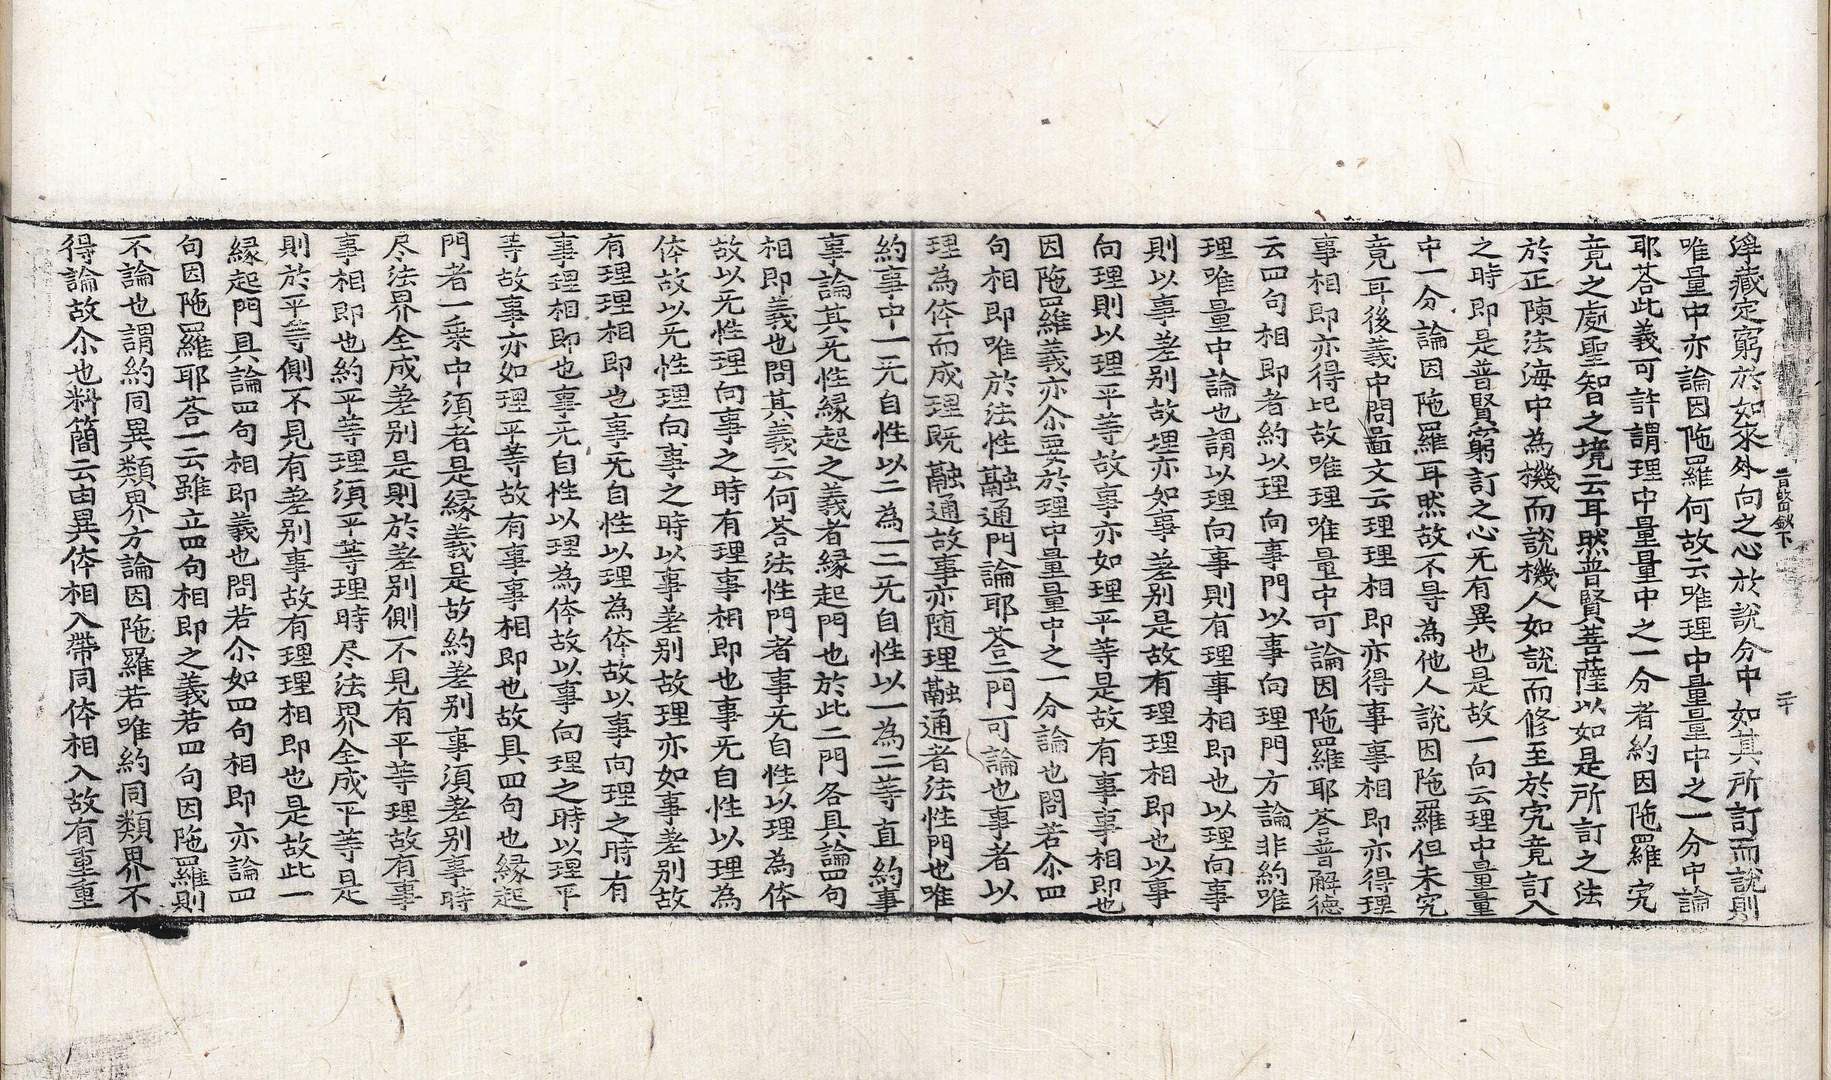 淨藏定窮於如來外向之心於說分中如其所訂而說則
唯量中亦論因陁羅何故云唯理中量量中之一分中論
耶荅此義可許謂理中量量中之一分者約因陁羅究
竟之處聖智之境云耳然普賢菩薩以如是所訂之法
於正陳法海中為機而說機人如說而修至於究竟訂入
之時即是普賢窮訂之心无有異也是故一向云理中量量
中一分論因陁羅耳然故不㝵為他人說因陁羅但未究
竟耳後義中問啚文云理理相即亦得事事相即亦得理
事相即亦得此故唯理唯量中可論因陁羅耶荅普解德
云四句相即者約以理向事門以事向理門方論非約唯
理唯量中論也謂以理向事則有理事相即也以理向事
則以事差別故理亦如事差別是故有理理相即也以事
向理則以理平等故事亦如理平等是故有事事相即也
因陁羅義亦尒要於理中量量中之一分論也問若尒四
句相即唯於法性融通門論耶荅二門可論也事者以
理為体而成理既融通故事亦随理融通者法性門也唯
約事中一无自性以二為一二无自性以一為二等直約事
事論其无性緣起之義者緣起門也於此二門各具論四句
相即義也問其義云何荅法性門者事无自性以理為体
故以无性理向事之時有理事相即也事无自性以理為
体故以无性理向事之時以事差別故理亦如事差別故
有理理相即也事无自性以理為体故以事向理之時有
事理相即也事无自性以理為体故以事向理之時以理平
等故事亦如理平等故有事事相即也故具四句也緣起
門者一乘中須者是緣義是故約差別事須差別事時
尽法界全成差別是則於差別側不見有平等理故有事
事相即也約平等理須平等理時尽法界全成平等是
則於平等側不見有差別事故有理理相即也是故此一
緣起門具論四句相即義也問若尒如四句相即亦論四
句因陁羅耶荅一云雖立四句相即之義若四句因陁羅則
不論也謂約同異類界方論因陁羅若唯約同類界不
得論故尒也料簡云由異体相入帶同体相入故有重重
普賢鈔下
二十